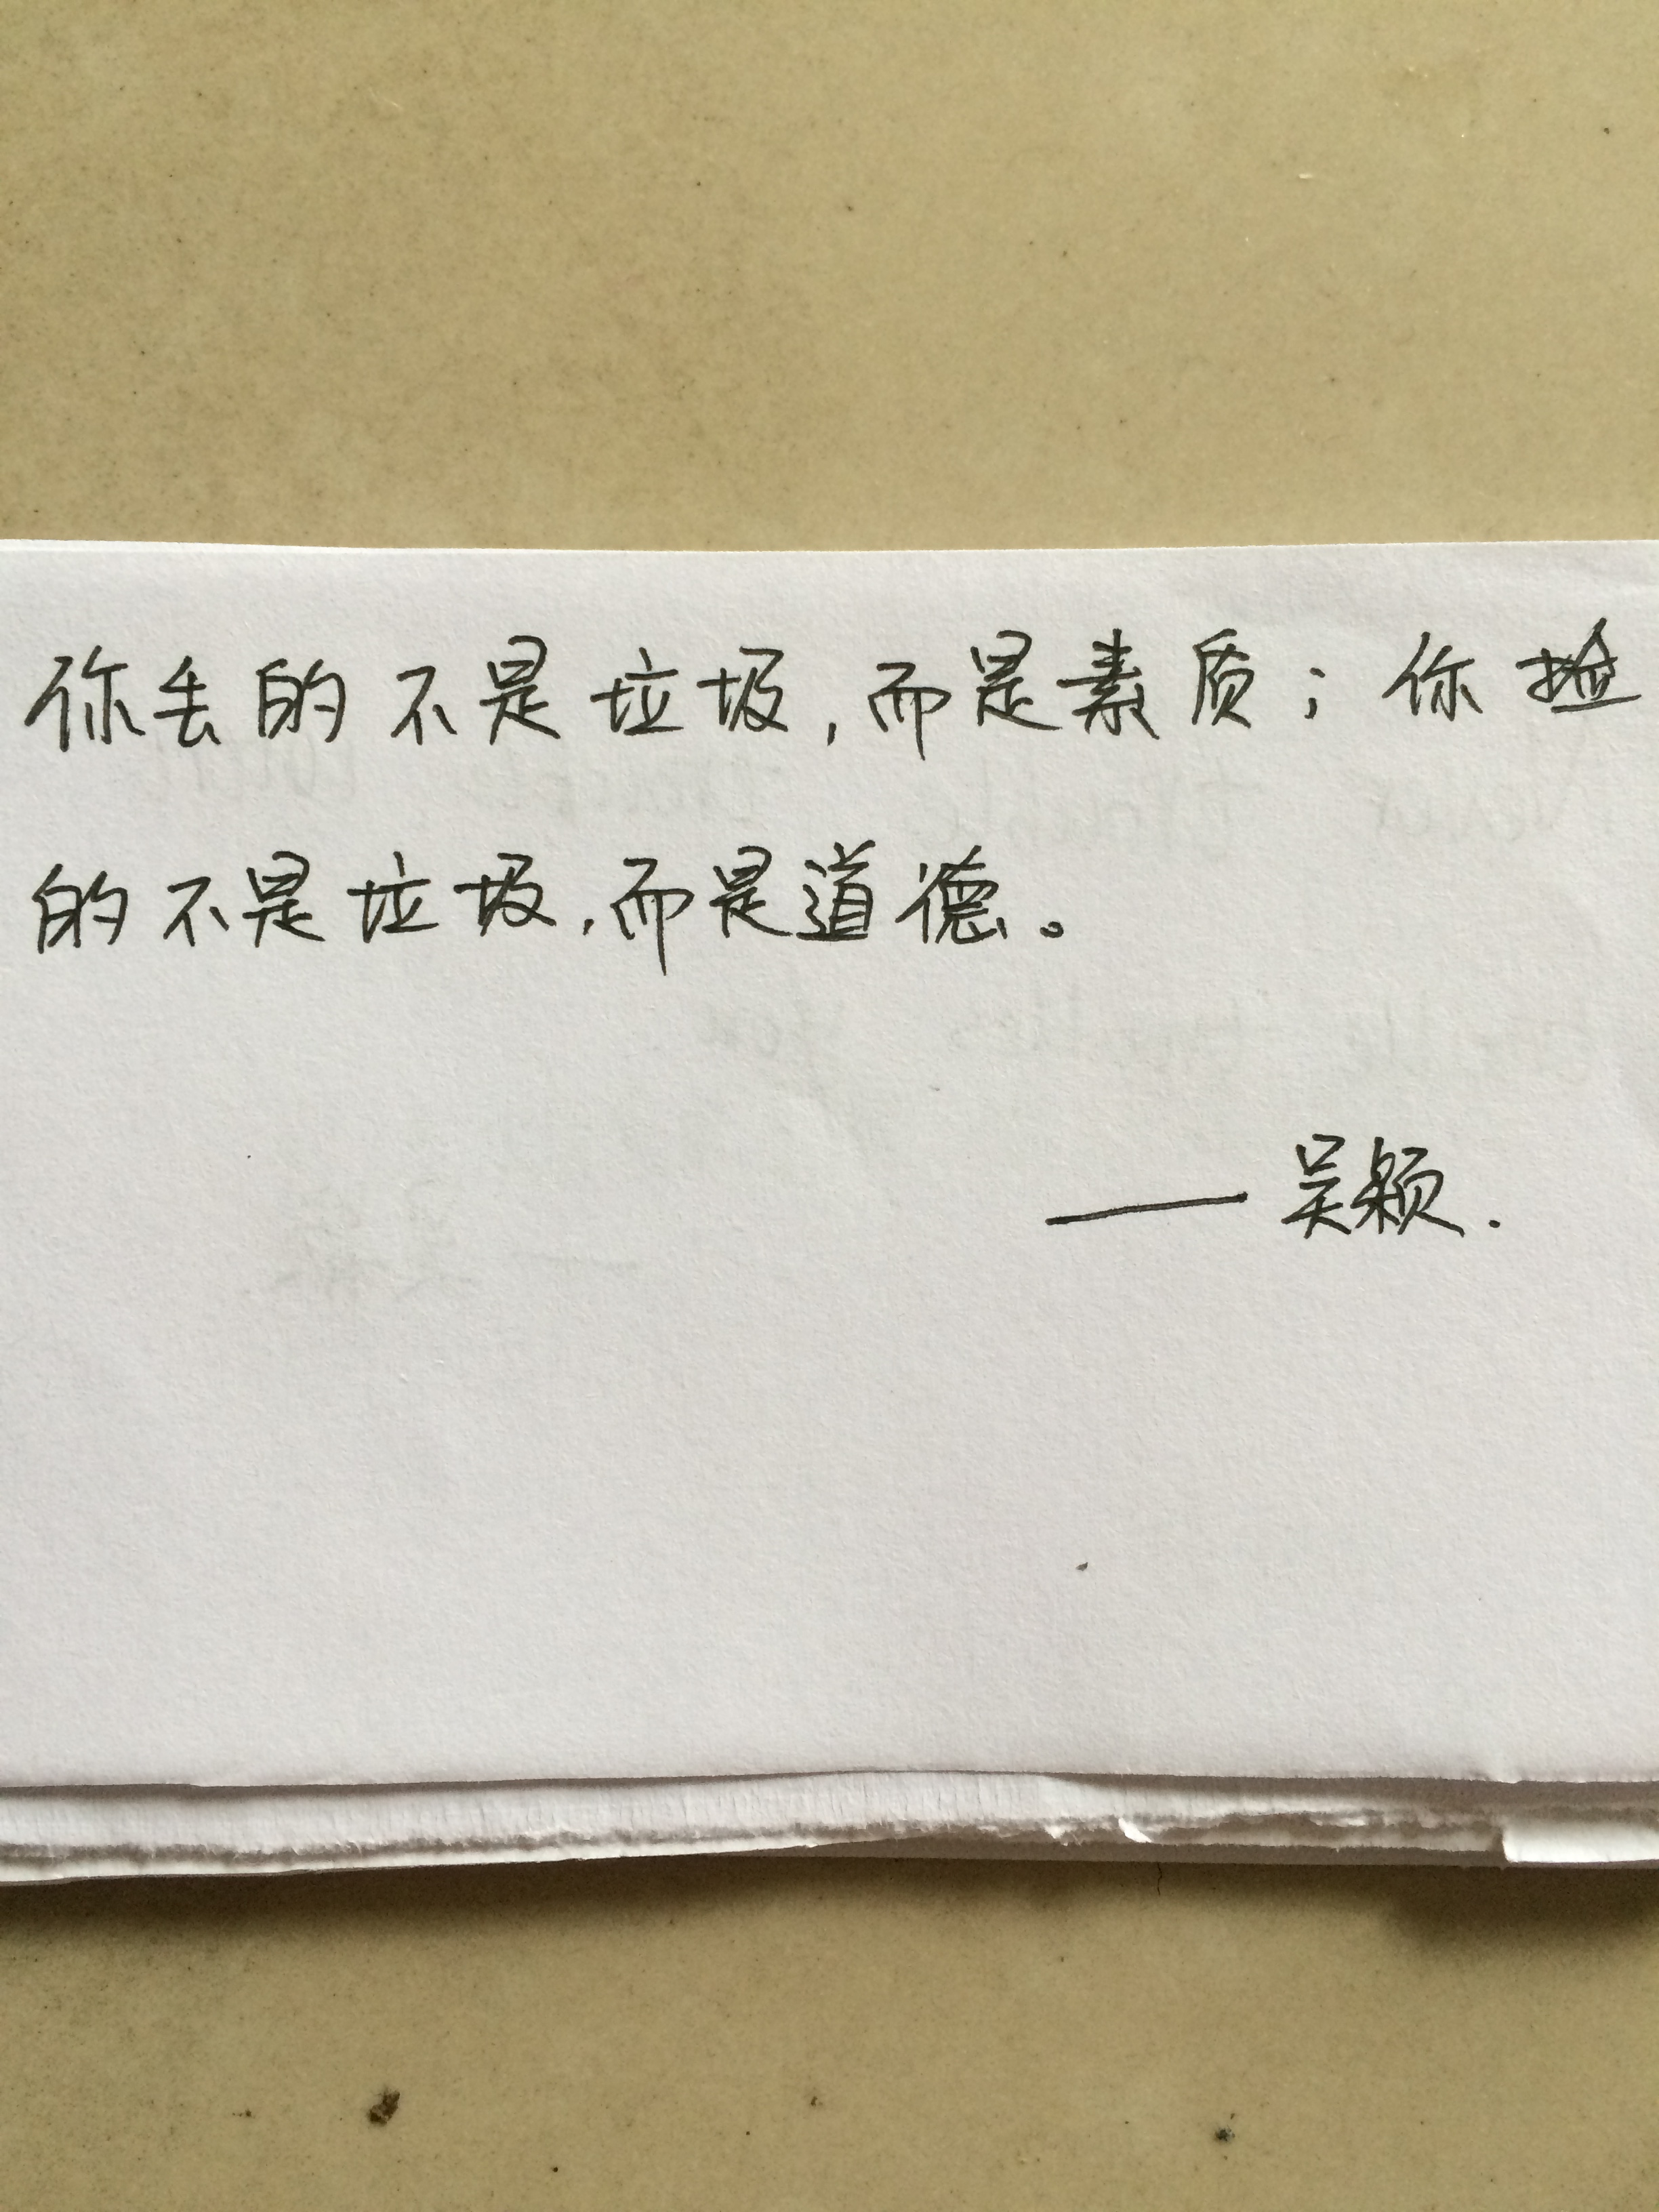 你丢的不是垃圾,而是素质;你捡
的不是垃圾,而是道德。
——吴颖.